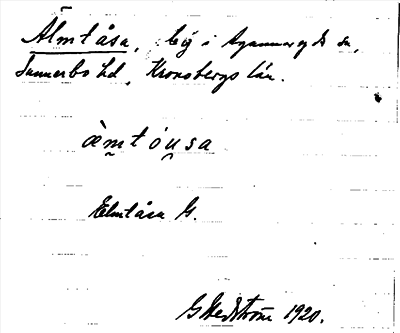 Älmtåsa, by i Agunnaryds sn,
Sunnerbo hd, Kronobergs län.
àm̰tóṵsa
Elmtåsa G.
G Hedström 1920.